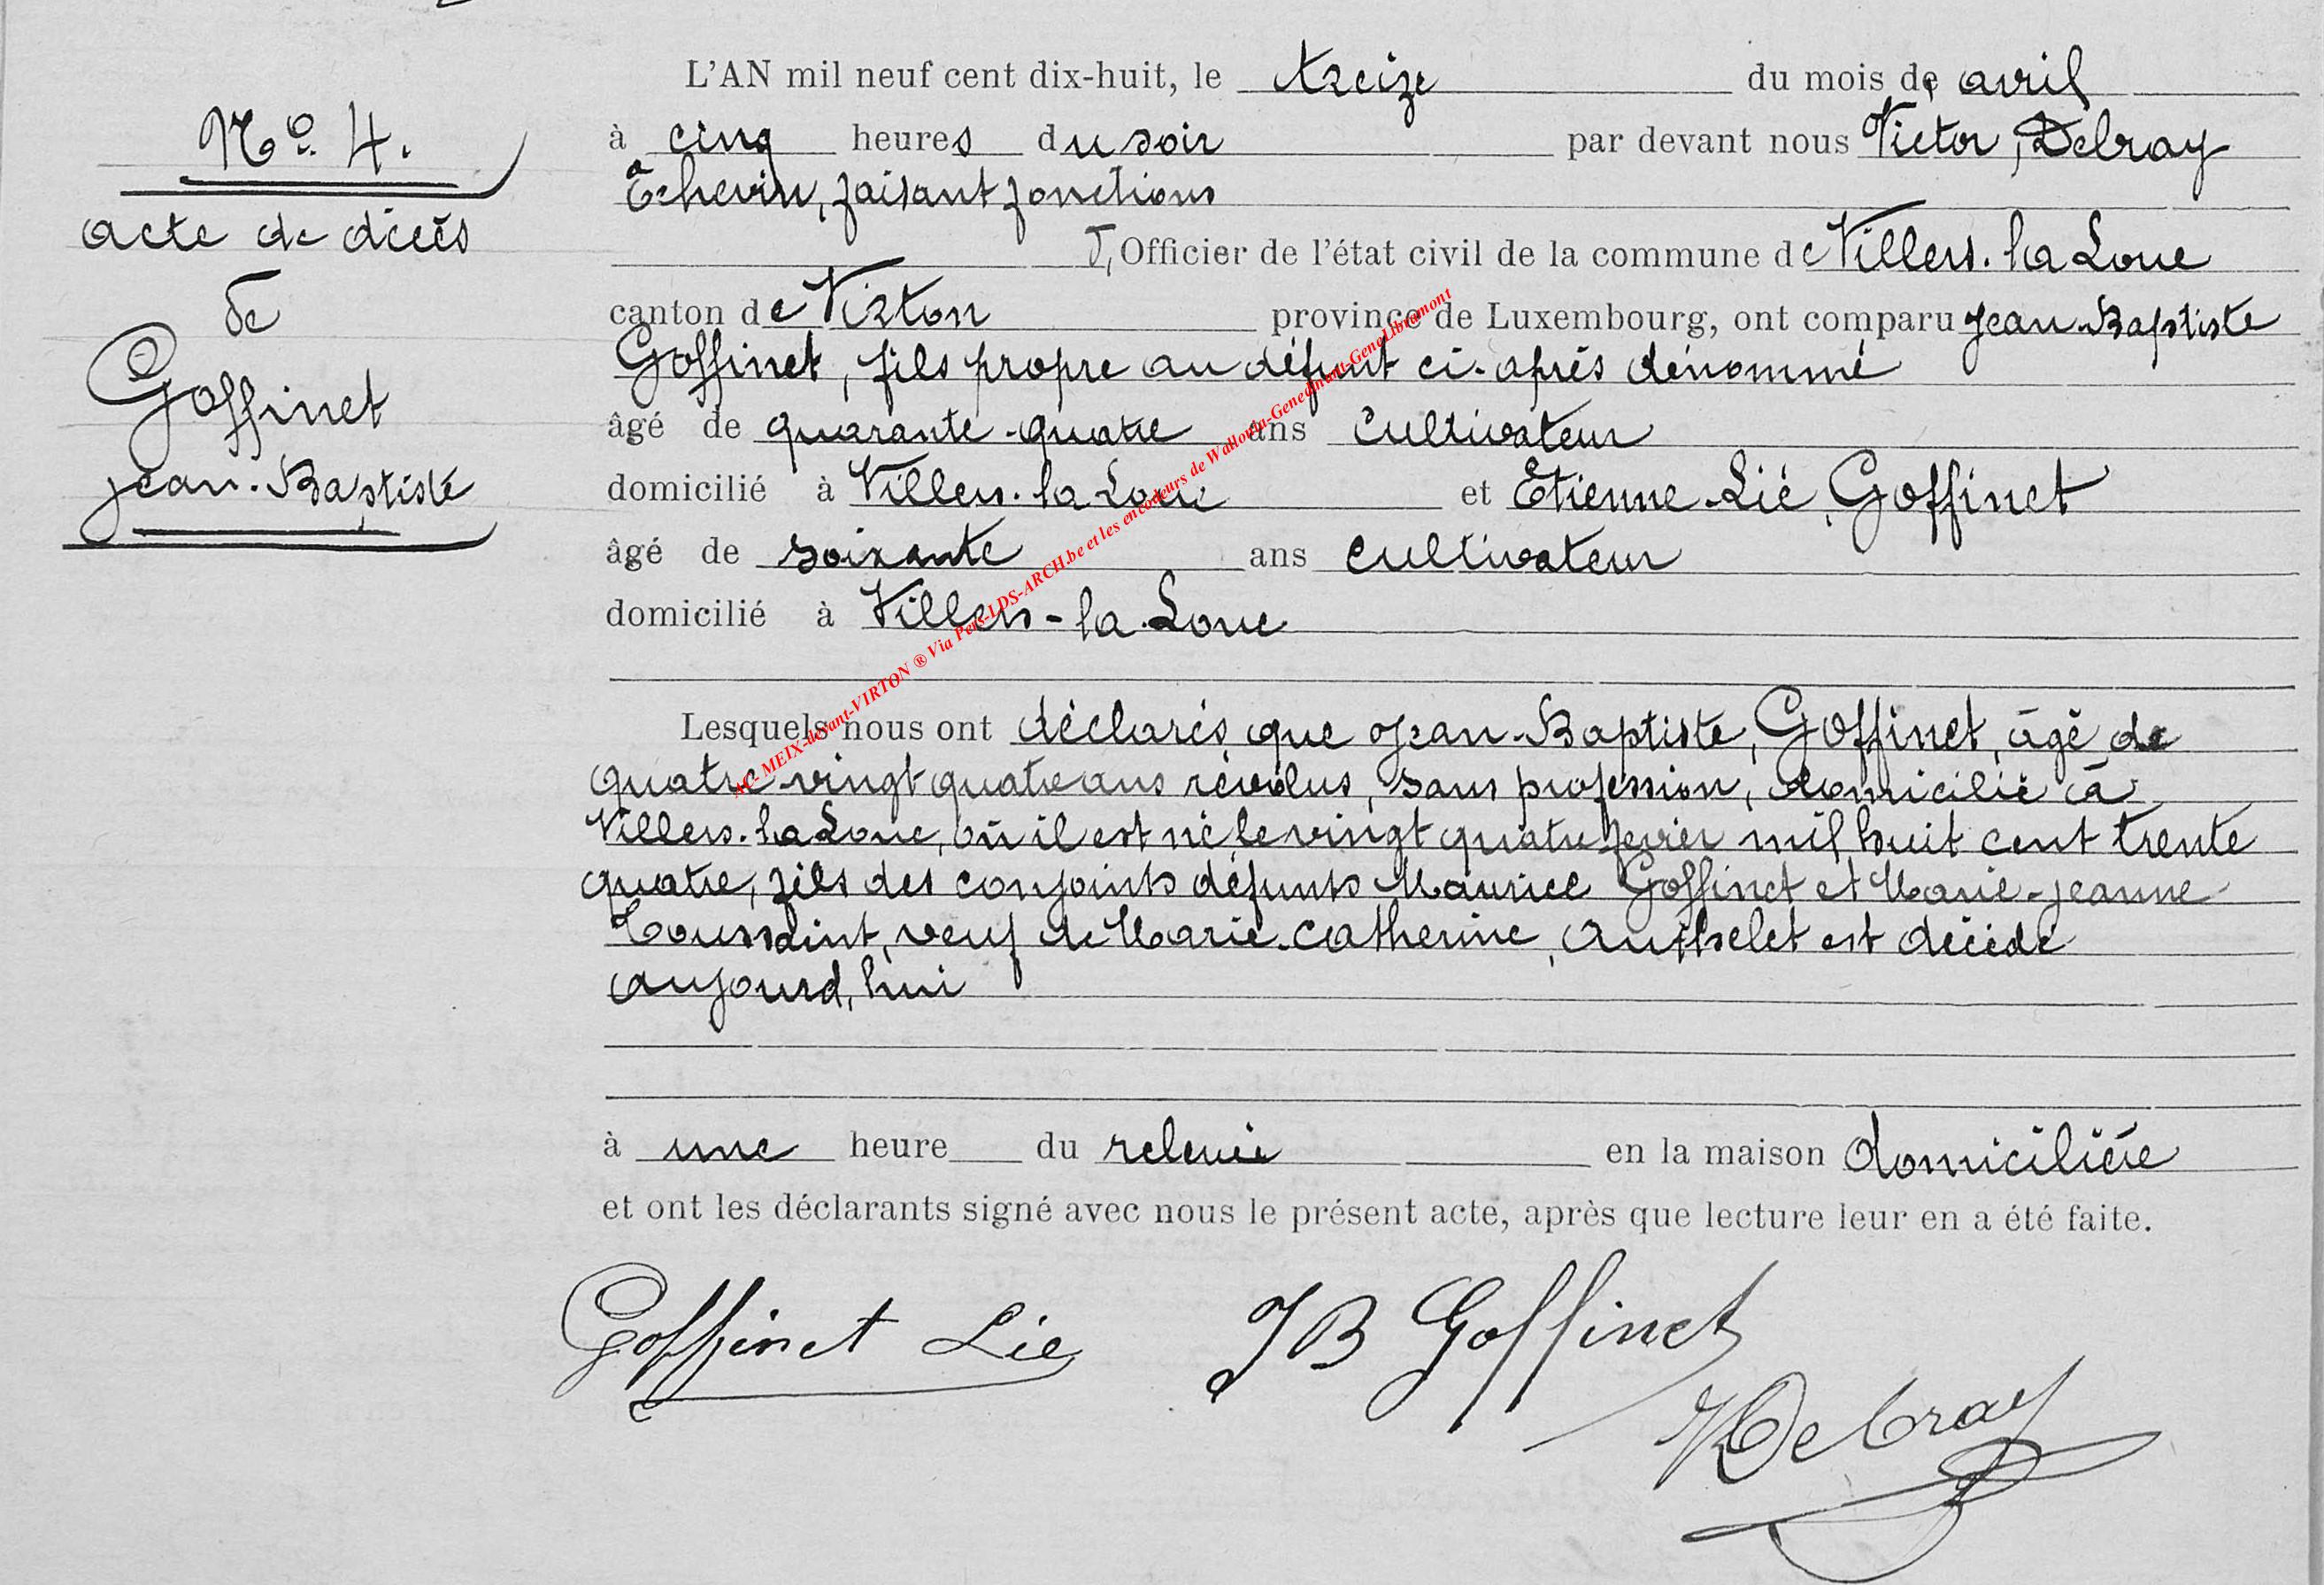 N° 4.
acte de décès
de
Goffinet
Jean-Baptiste
L'AN mil neuf cent dix-huit, le treize du mois de avril
à cinq heures du soir par devant nous Victor, Debray
Echevin, faisant fonctions
Officier de l'état civil de la commune de Villers-la-Loue
canton de Virton province de Luxembourg, ont comparu Jean-Baptiste
Goffinet, fils propre au défunt ci-après dénommé
âgé de quarante-quatre ans cultivateur
domicilié à Villers-la-Loue et Etienne-Lié, Goffinet
âgé de soixante ans cultivateur
domicilié à Villers-la-Loue
Lesquels nous ont déclarés que Jean-Baptiste, Goffinet, âgé de
quatre-vingt quatre ans révolus, sans profession, domicilié à
Villers-la-Loue, où il est né le vingt quatre fevrier mil huit cent trente
quatre, fils des conjoints défunts Maurice Goffinet et Marie-Jeanne
Toussaint, veuf de Marie-Catherine, est décédé
aujourd,hui
à une heure du relevée en la maison domicilière
et ont les déclarants signé avec nous le présent acte, après que lecture leur en a été faite.
Goffinet Lie JB Goffinet
VDebray
AC- MEIX-devant-VIRTON ® Via Pers-LDS-ARCH.be et les encodeurs de Wallonia-Genedinant-GeneLibramont